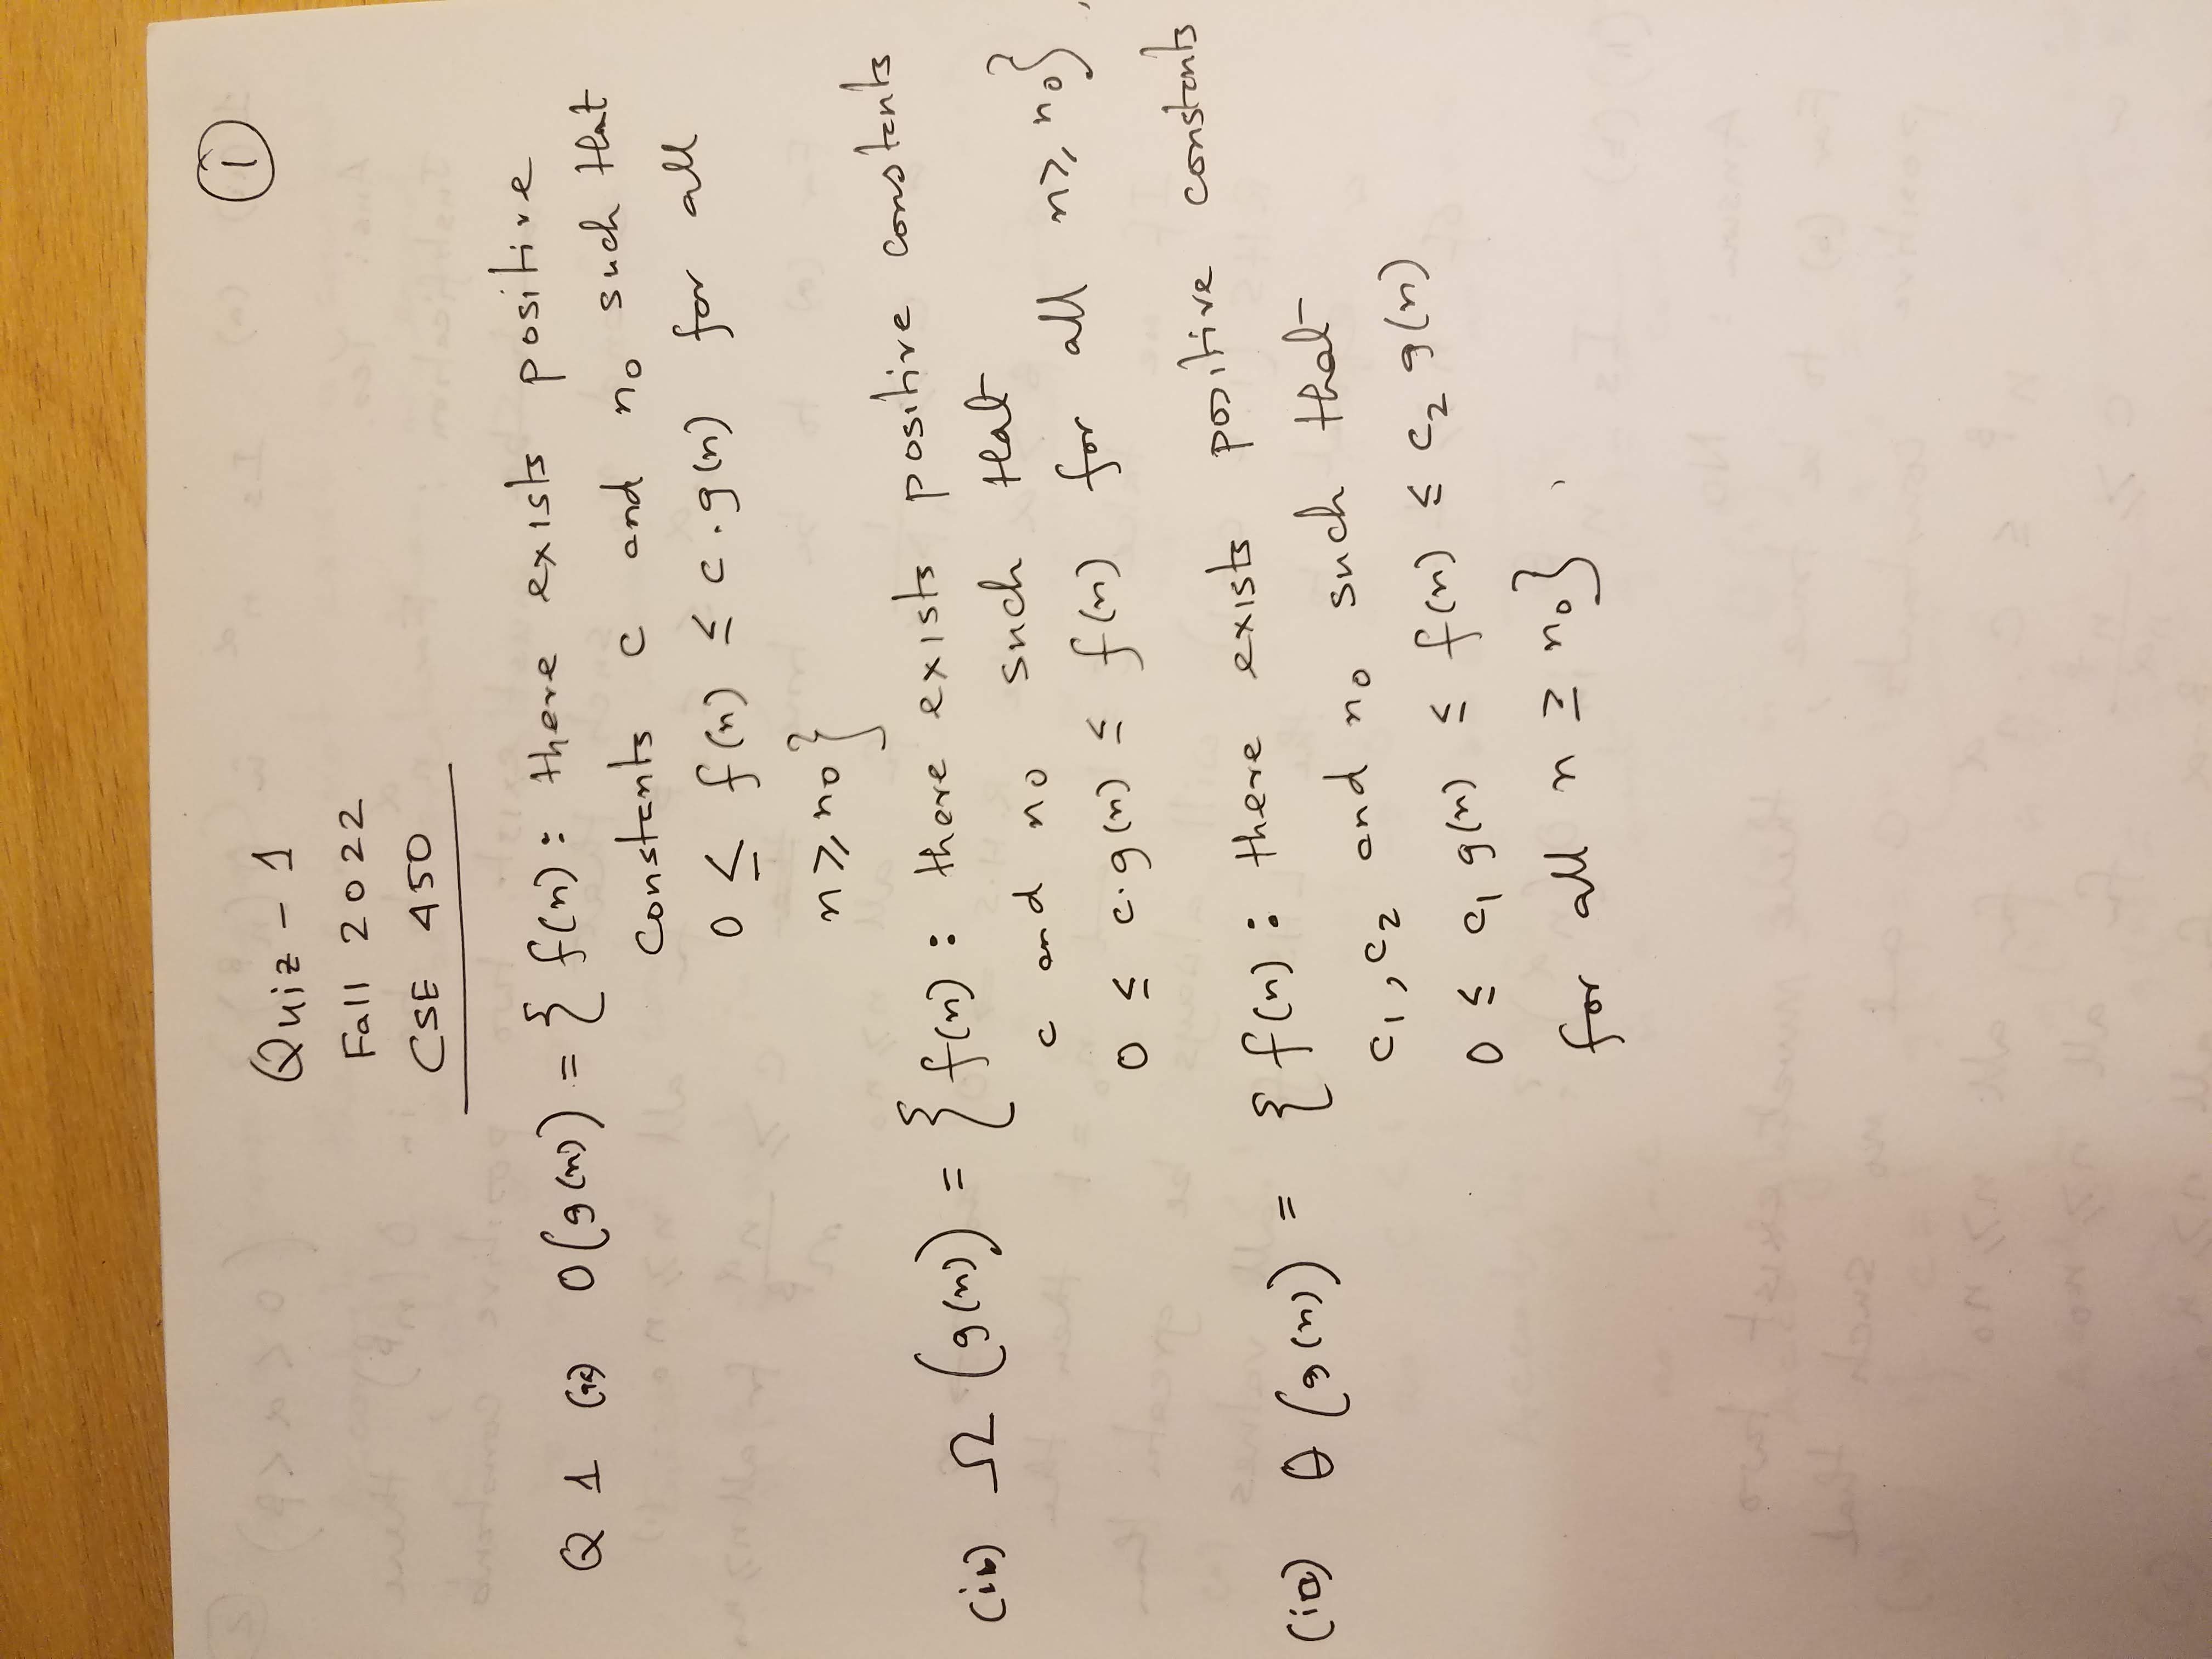 1
Quiz - 1
Fall 2022
CSE 450
Q 1 O(g(n)) = { f(n) : there exists positive
constants c and n₀ such that
0 ≤ f(n) ≤ c . g(n) for all
n ≥ n₀ }
Ω (g(n)) = { f(n) : there exists positive constants
c and n₀ such that
0 ≤ c.g(n) ≤ f(n) for all n ≥ n₀ },
θ (g(n)) = { f(n) : there exists positive constants
c₁, c₂ and n₀ such that
0 ≤ c₁ g(n) ≤ f(n) ≤ c₂ g(n)
for all n ≥ n₀ } ,